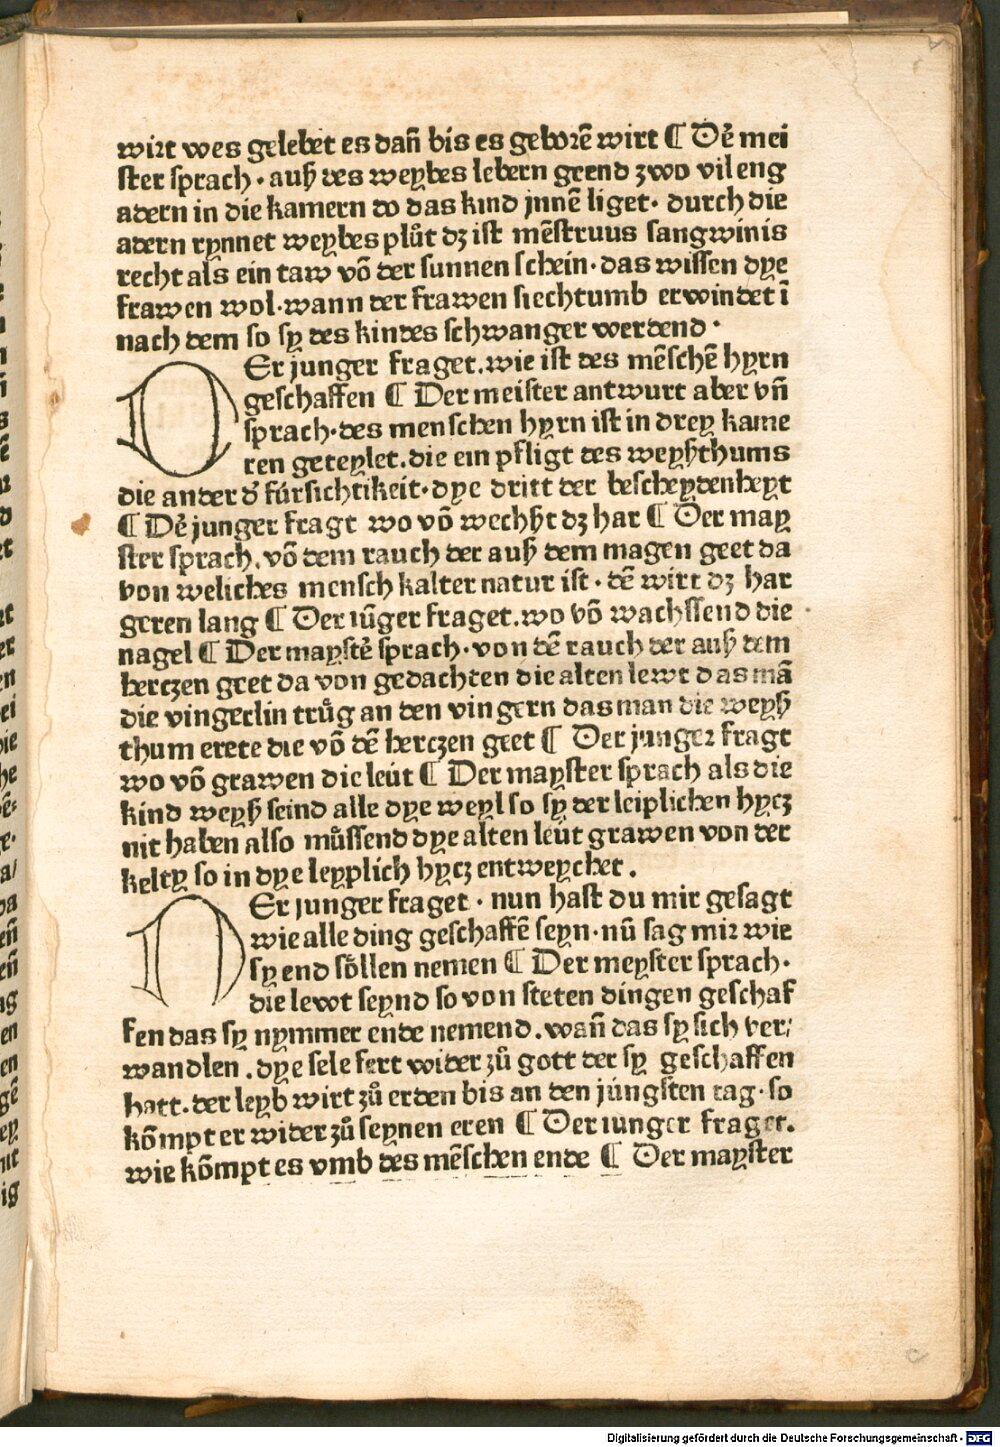 wirt wes gelebet es dañ bis es geborē wirt ¶ Dē mei
ster sprach · auß des weybes lebern geend zwo vil eng
adern in die kamern do das kind jnnē liget · durch die
adern rynnet weybes plůt dz ist mēstruus sangwinis
recht als ein taw võ der sunnen schein · das wissen dye
frawen wol · wann der frawen siechtumb erwindet ī
nach dem so sy des kindes schwanger werdend ·
DEr junger fraget. wie ist des mēschē hyrn
geschaffen ¶ Der meister antwurt aber vñ
sprach · des menschen hyrn ist in drey kame
ren geteylet. die ein pfligt des weyßthums
die ander d' fürsichtikeit · dye dritt der bescheydenheyt
¶ Dē junger fragt wo võ wechßt dz har ¶ Der may
ster sprach. võ dem rauch der auß dem magen geet da
von weliches mensch kalter natur ist · dē wirt dz har
geren lang ¶ Der iūger fraget. wo võ wachssend die
nagel ¶ Der maystē sprach · von dē rauch der auß dem
herczen geet da von gedachten die alten lewt das mā
die vingerlin trůg an den vingern das man die weyß
thum erete die võ dē herczen geet ¶ Der junger fragt
wo võ grawen die leüt ¶ Der mayster sprach als die
kind weyß seind alle dye weyl so sy der leiplichen hycz
nit haben also můssend dye alten leüt grawen von der
kelty so in dye leyplich hycz entweychet .
DEr junger fraget · nun hast du mir gesagt
wie alle ding geschaffē seyn · nū sag mir wie
sy end söllen nemen ¶ Der meyster sprach ·
die lewt seynd so von steten dingen geschaf
fen das sy nymmer ende nemend. wañ das sy sich ver/
wandlen . dye sele fert wider zů gott der sy geschaffen
hatt. der leyb wirt zů erden bis an den jüngsten tag · so
kõmpt er wider zů seynen eren ¶ Der iunger fraget.
wie kõmpt es vmb des mēschen ende ¶ Der mayster
Digitalisierung gefördert durch die Deutsche Forschungsgemeinschaft - DFG